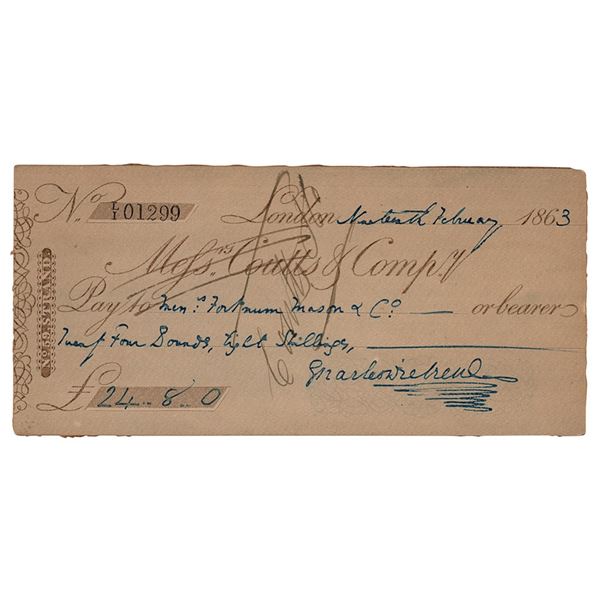 No. L/Y 01299 London Nineteenth February 1863
Messrs. Coutts & Compy.
Pay to Messrs. Fortnum Mason & Co. or bearer
Twenty Four Pounds, Eight Shillings,
£ 24..8..0